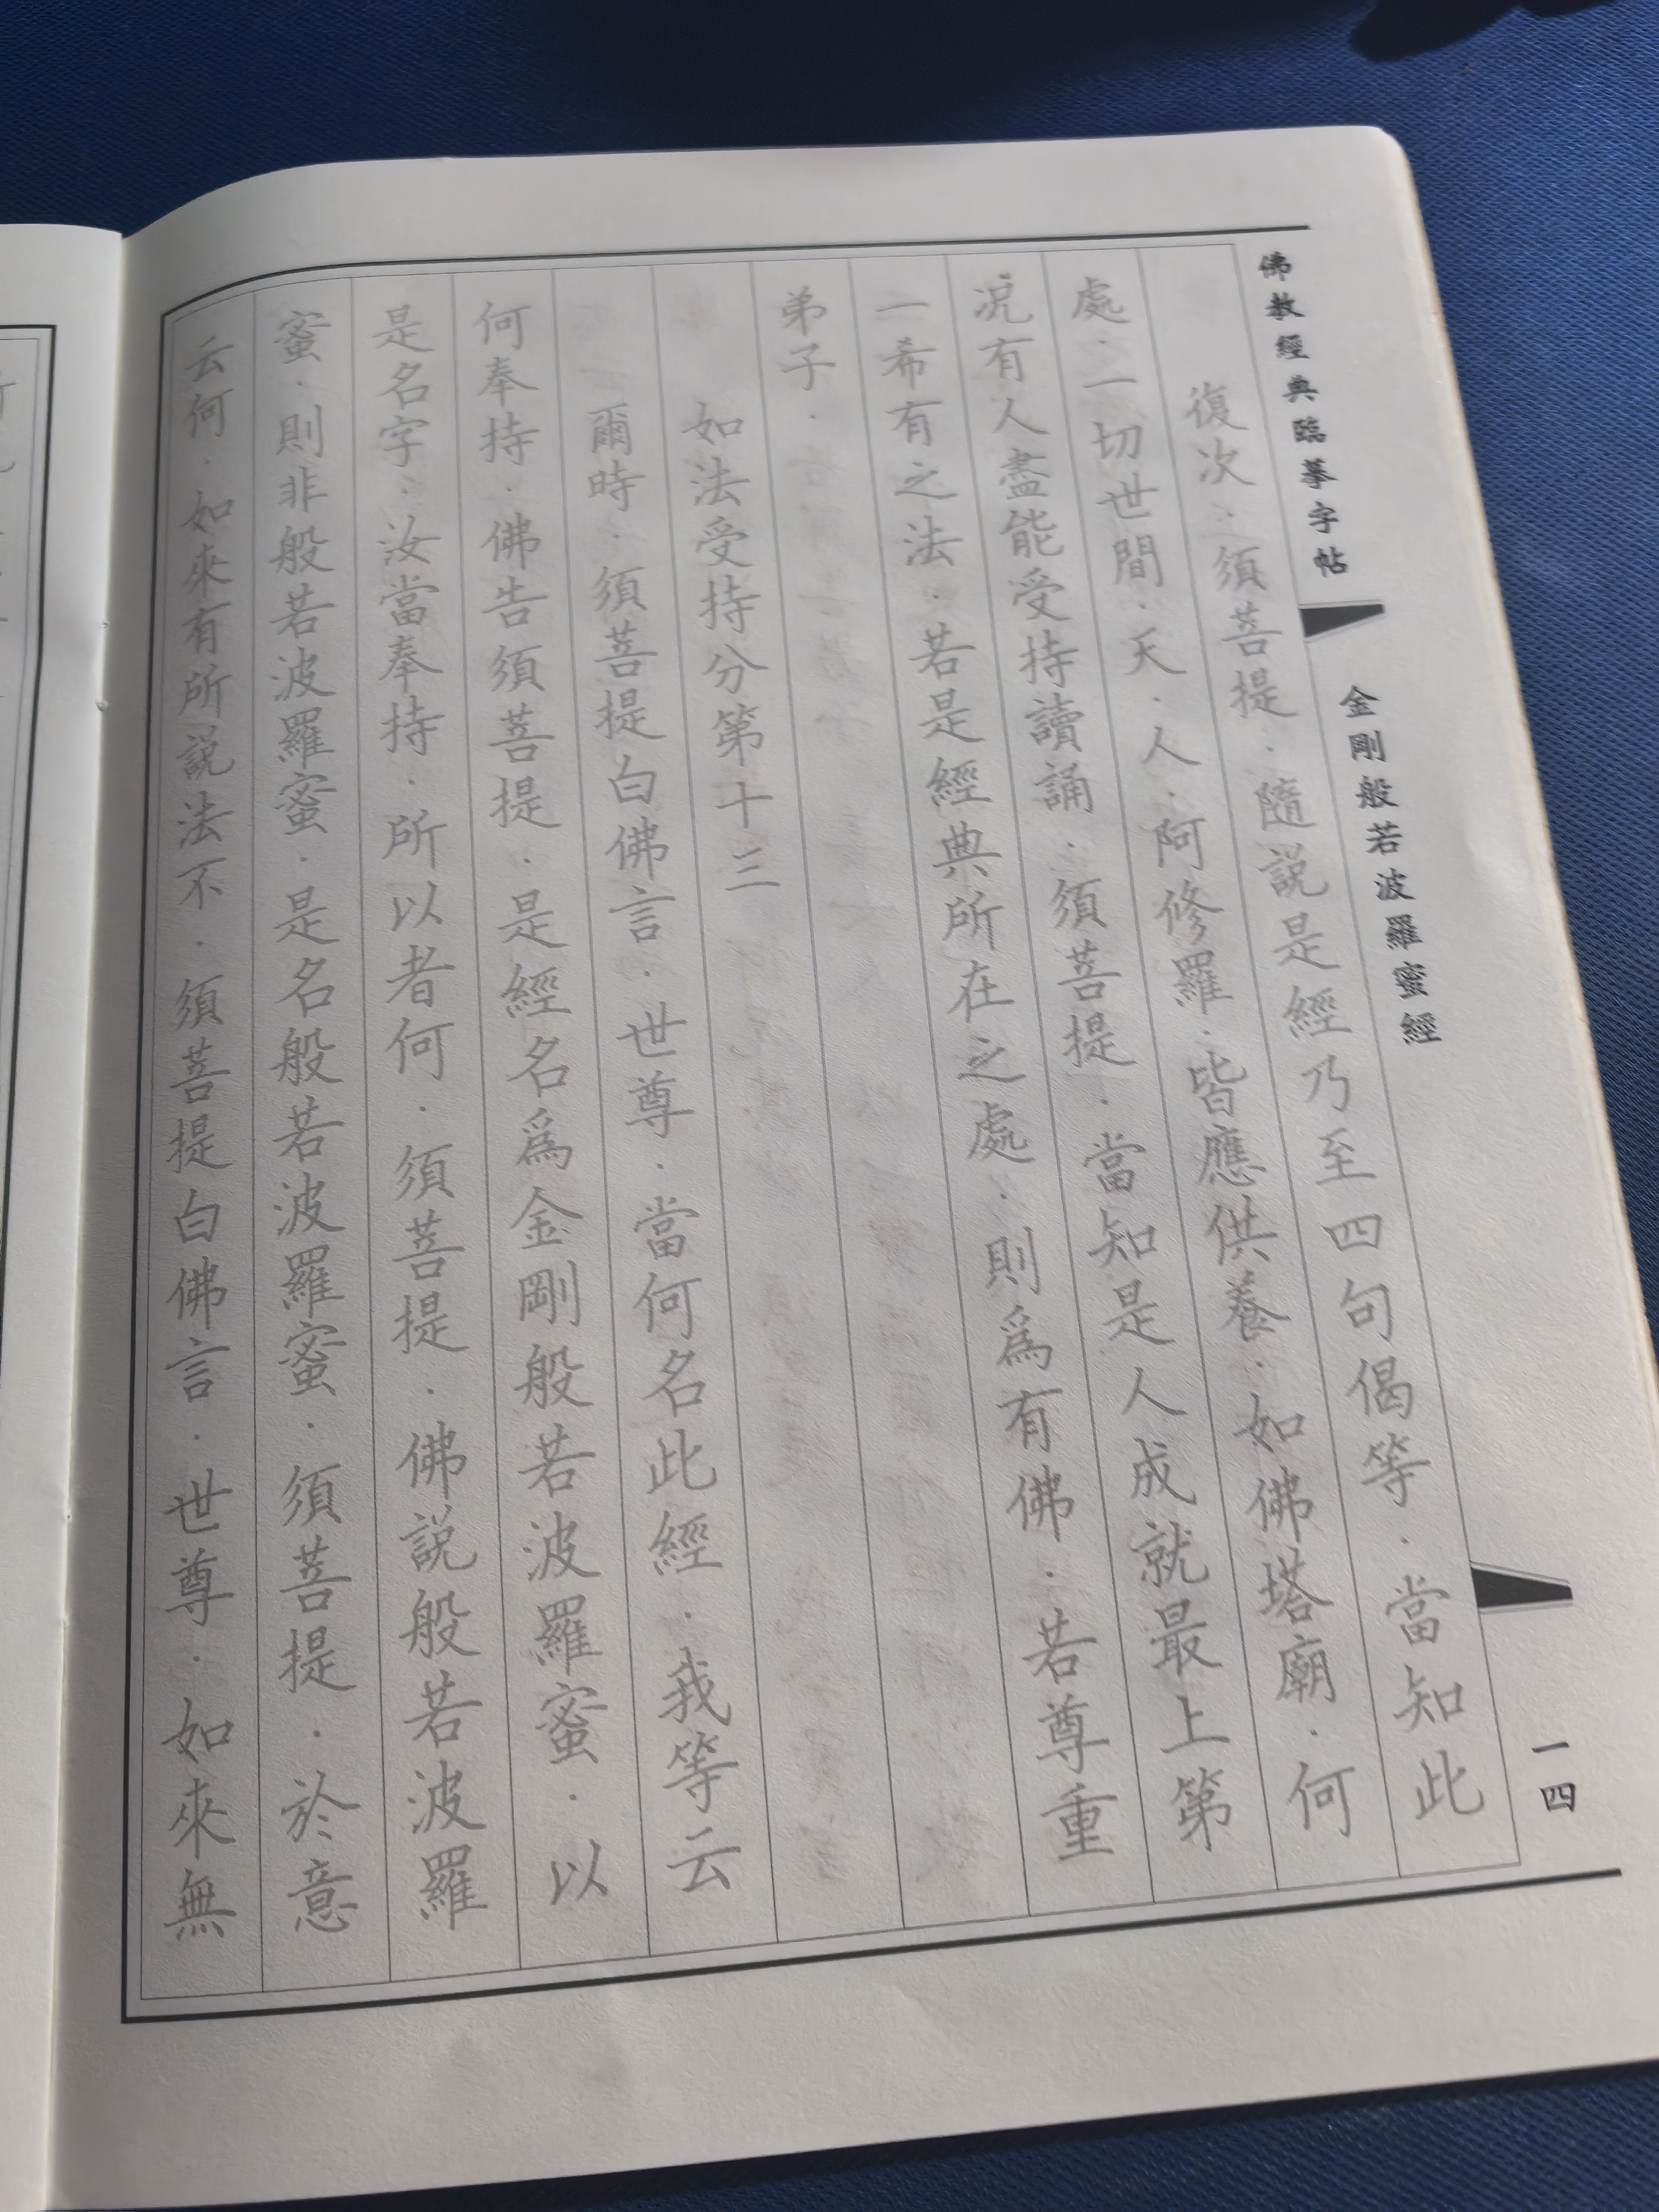 佛教經典臨摹字帖
金剛般若波羅蜜經
一四
復次．須菩提．隨說是經乃至四句偈等．當知此
處．一切世間．天．人．阿修羅．皆應供養．如佛塔廟．何
況有人盡能受持讀誦．須菩提．當知是人成就最上第
一希有之法．若是經典所在之處．則為有佛．若尊重
弟子．
如法受持分第十三
爾時．須菩提白佛言．世尊．當何名此經．我等云
何奉持．佛告須菩提．是經名為金剛般若波羅蜜．以
是名字．汝當奉持．所以者何．須菩提．佛說般若波羅
蜜．則非般若波羅蜜．是名般若波羅蜜．須菩提．於意
云何．如來有所說法不．須菩提白佛言．世尊．如來無